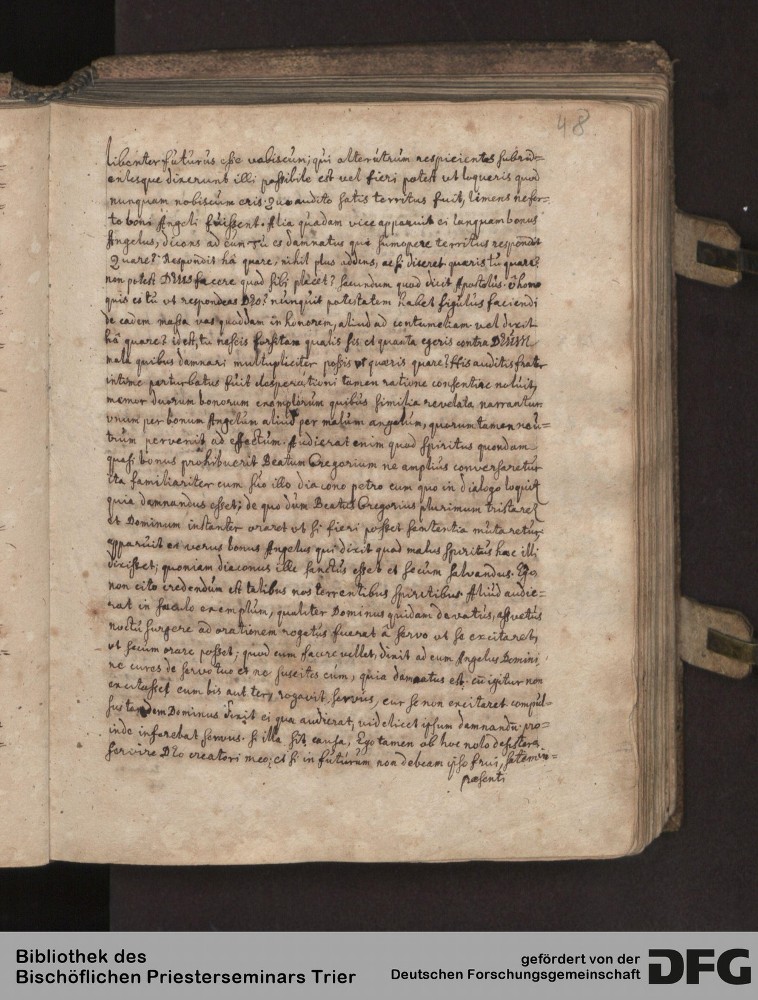 48
libenter futurus esse vobiscum; qui alterutrum respicientes subrid=
entesque dixerunt illi possibile est vel fieri potest ut loqueris quod
nunquam nobiscum eris. Quo audito satis territus fuit, timens ne for=
te boni Angeli fuissent. Alia quadam vice apparuit ei tanquam bonus
Angelus, dicens ad eum Tu es damnatus qui summopere territus respondit
Quare? Respondit hâ quare, nihil plus addens, ac si diceret quæris tu quare?
non potest DEUS facere quod sibi placet? secundum quod dicit Apostolus. ô homo
quis es tu ut respondeas DEo? nunquit potestatem habet figulus faciendi
de eadem massa vas quoddam in honorem, aliud ad contumeliam vel dixit
hâ quare? id est, tu nescis forsitam qualis sis et quanta egeris contra DEUM
mala quibus damnari multipliciter possis et quæris quare? His auditis frater
intime perturbatus fuit desperationi tamen ratione consentire noluit,
memor duorum bonorum exemplorum quibus similia revelata narrantur
unum per bonum Angelum aliud per malum angelum, quorum tamen neu=
trum pervenit ad effectum. Audierat enim quod spiritus quondam
quasi bonus prohibuerit Beatum Gregorium ne amplius conversaretur
ita familiariter cum suo illo diacono petro cum quo in dialogo loquit
quia damnandus esset; de quo dum Beatus Gregorius plurimum tristaret
et Dominum instanter oraret ut si fieri posset sententia mutaretur
apparuit ei verus bonus Angelus qui dixit quod malus spiritus hæc illi
dixisset; quoniam diaconus ille sanctus esset et secum salvandus. Ergo
non cito credendum est talibus nos terrentibus spiritibus. Aliud audie=
rat in sæculo exemplum, qualiter Dominus quidam devotus, assuetus
noctu surgere ad orationem rogatus fuerat à servo ut se excitaret,
ut secum orare posset; quod cum facere vellet, dixit ad eum Angelus Domini,
ne cures de servo tuo et ne suscites eum, quia damnatus est. cũ igitur non
excitasset eum bis aut ter, rogavit servus, cur se non excitaret compul=
sus tandem Dominus dixit ei qua audierat, videlicet ipsum damnandũ. pro=
inde inferebat servus. si illa sit causa, Ego tamen ob hoc nolo desistere
servire DEo creatori meo; et si in futurum non debeam ipso frui, saltem in=
præsenti
Bibliothek des
Bischöflichen Priesterseminars Trier
gefördert von der
Deutschen Forschungsgemeinschaft
DFG